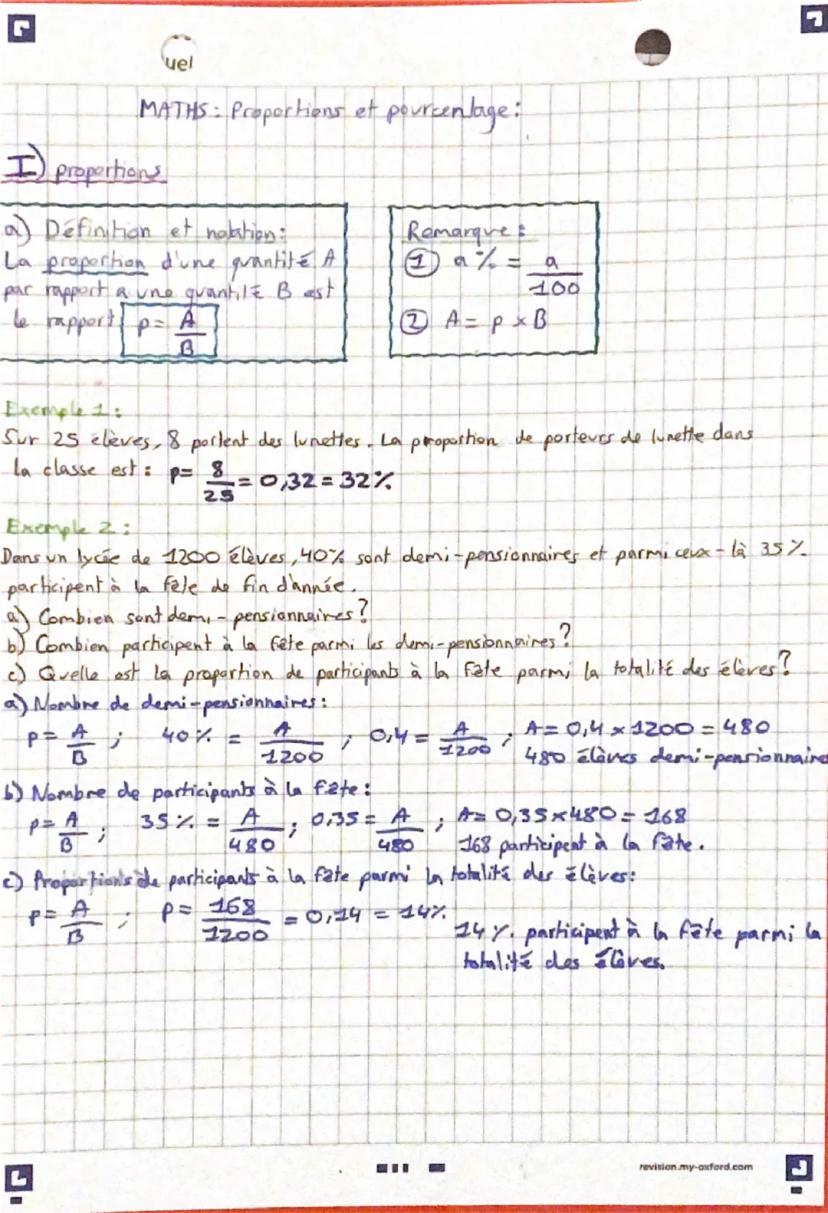 uel
MATHS : Proportions et pourcentage :
I) proportions
a) Définition et notation :
La proportion d'une quantité A
par rapport a une quantité B est
le rapport p = A/B
Remarque :
① a % = a/100
② A = p × B
Exemple 1 :
Sur 25 élèves, 8 portent des lunettes. La proportion de porteurs de lunette dans
la classe est : p = 8/25 = 0,32 = 32 %
Exemple 2 :
Dans un lycée de 1200 élèves, 40% sont demi-pensionnaires et parmi ceux-là 35 %
participent à la fête de fin d'année.
a) Combien sont demi-pensionnaires ?
b) Combien participent à la fête parmi les demi-pensionnaires ?
c) Quelle est la proportion de participants à la fête parmi la totalité des élèves ?
a) Nombre de demi-pensionnaires :
p = A/B ; 40 % = A/1200 ; 0,4 = A/1200 ; A = 0,4 × 1200 = 480
480 élèves demi-pensionnaire
b) Nombre de participants à la fête :
p = A/B ; 35 % = A/480 ; 0,35 = A/480 ; A = 0,35 × 480 = 168
168 participent à la fête.
c) Proportions de participants à la fête parmi la totalité des élèves :
p = A/B ; p = 168/1200 = 0,14 = 14 %
14 % participent à la fête parmi la
totalité des élèves.
revision.my-oxford.com